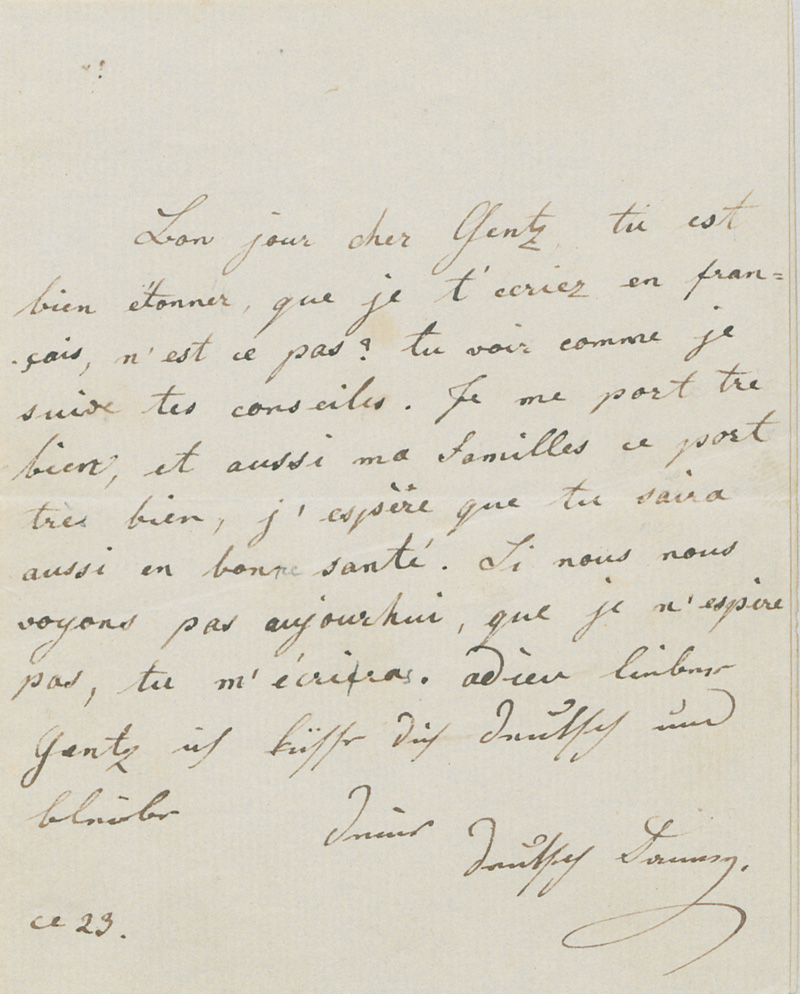 Bon jour cher Gentz, tu est
bien étonner, que je t'ecriez en fran=
çais, n'est ce pas? tu voir comme je
suive tes conseiles. Je me port tre
bien, et aussi ma familles ce port
tres bien, j'espère que tu saira
aussi en bonne santé. Si nous nous
voyons pas aujourhui, que je n'espère
pas, tu m'écriras. adieu lieber
Gentz ich küsse dich deutsch und
bleibe
deine
deutsche Fanny.
ce 23.